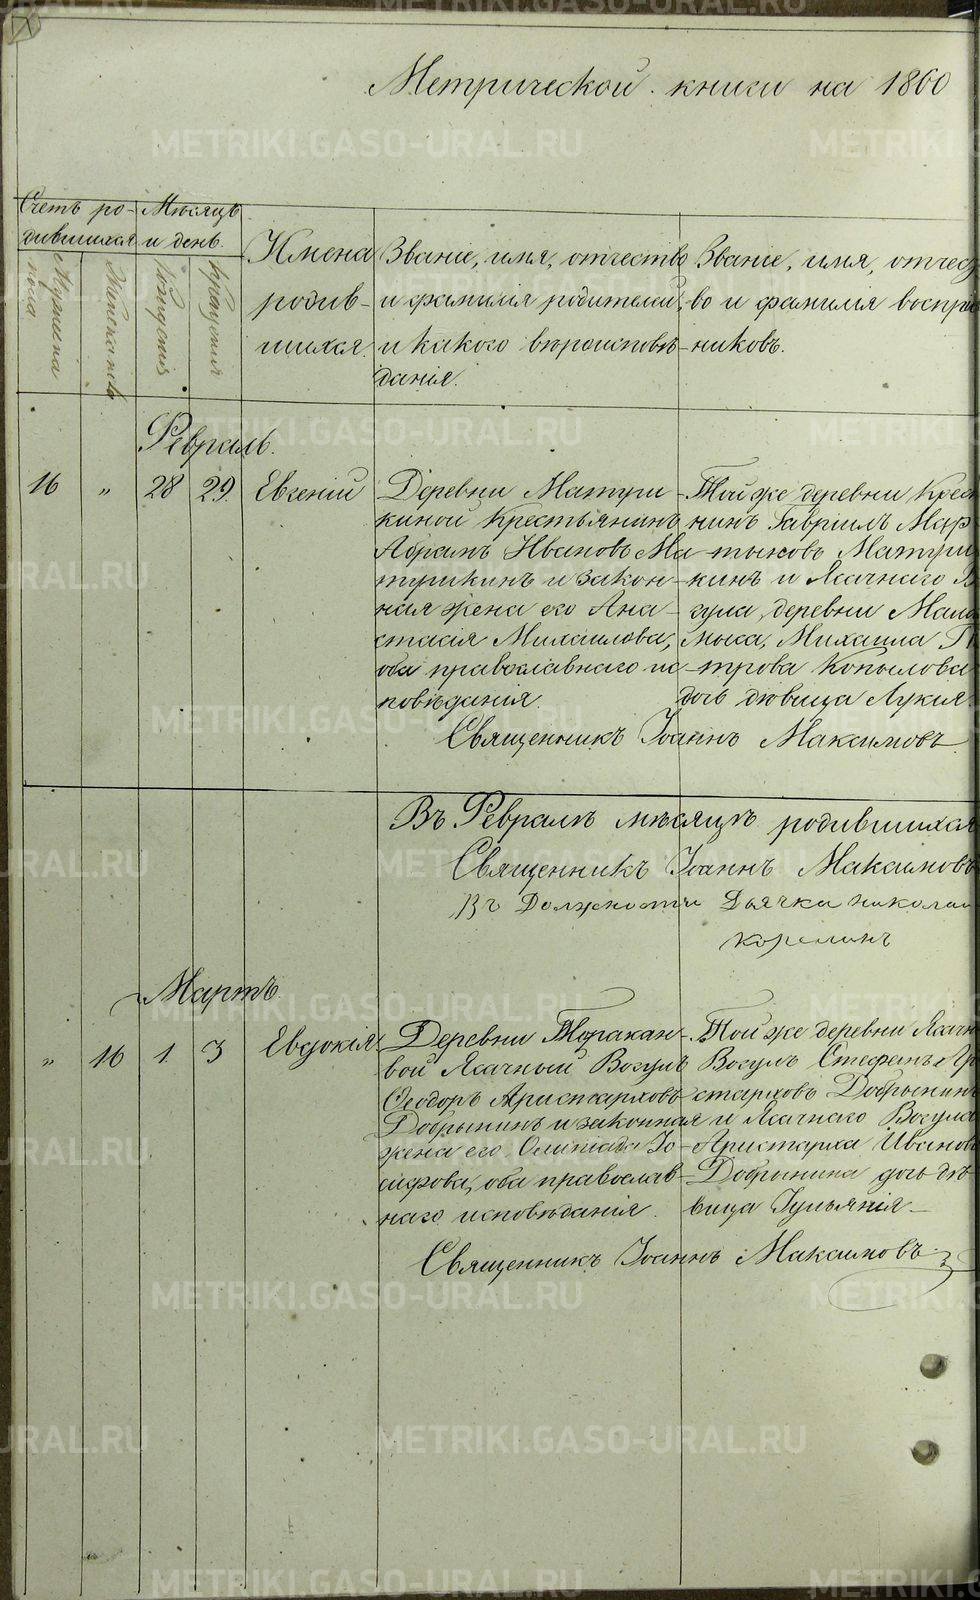 Метрической книги на 1860
Счетъ ро-
дившихся
Мѣсяцъ
и день.
Мужеска
пола
Женскаго
рожденія
крещенія
Имена
родив-
шихся.
Званіе, имя, отчество
и фамилія родителей,
и какого вѣроисповѣ-
данія.
Званіе, имя, отчес
во и фамилія воспрі
никовъ.
Февраль.
16 „ 28 29. Евгеній
Деревни Матури-
киной Крестьянинъ
Абрамъ Ивановъ Ма-
турикинъ и закон-
ная жена его Ана-
стасія Михаилова,
оба православнаго ис-
повѣданія.
Той же деревни Крес
нинъ Гавріилъ Мар
тыновъ Матури
кинъ и Ясачнаго В
гула, деревни Мала
Мыса, Михаила П
трова Копылова
дочь дѣвица Лукія.
Священникъ Іоаннъ Максимовъ
Въ Февралѣ мѣсяцѣ родившихся
Священникъ Іоаннъ Максимовъ
Въ Должности Дьячка Николай
Корелинъ
Мартъ.
„ 16 1 3 Евдокія
Деревни Таракан-
вой Ясачный Вогулъ
Ѳеодоръ Аристарховъ
Добрынинъ и законная
жена его Олимпіада Іо-
сифова, оба православ-
наго исповѣданія.
Той же деревни Ясачн
Вогулъ Стефанъ Ар
старховъ Добрынинъ
и Ясачнаго Вогула
Аристарха Иванов
Добрынина дочь дѣ-
вица Іульянія
Священникъ Іоаннъ Максимовъ
METRIKI.GASO-URAL.RU